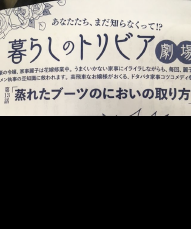 あなたたち、まだ知らなくって!?
暮らしのトリビア劇場
の令嬢、家事麗子は花嫁修業中。うまくいかない家事にイライラしながらも、毎回、麗子
メン執事の豆知識に救われます。高飛車なお嬢様がおくる、ドタバタ家事コツコメディ
第13話
蒸れたブーツのにおいの取り方